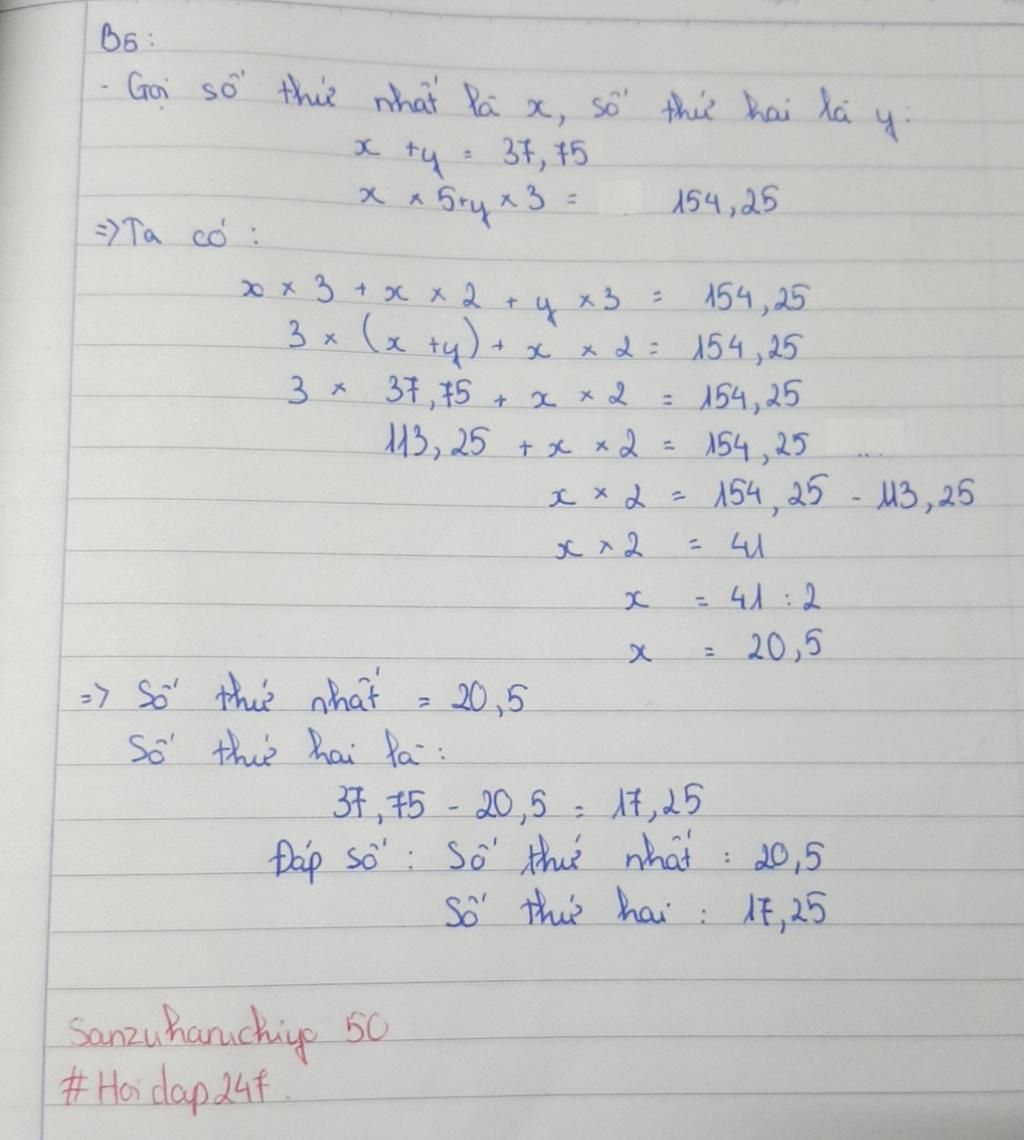 B5:
- Gọi số thứ nhất là x, số thứ hai là y:
x + y = 37,75
x × 5 + y × 3 = 154,25
=> Ta có :
x × 3 + x × 2 + y × 3 = 154,25
3 × (x + y) + x × 2 = 154,25
3 × 37,75 + x × 2 = 154,25
113,25 + x × 2 = 154,25 ...
x × 2 = 154,25 - 113,25
x × 2 = 41
x = 41 : 2
x = 20,5
=> Số thứ nhất = 20,5
Số thứ hai là :
37,75 - 20,5 = 17,25
Đáp số : Số thứ nhất : 20,5
Số thứ hai : 17,25
Sanzuharuchiyo 50
#Hoidap24f.